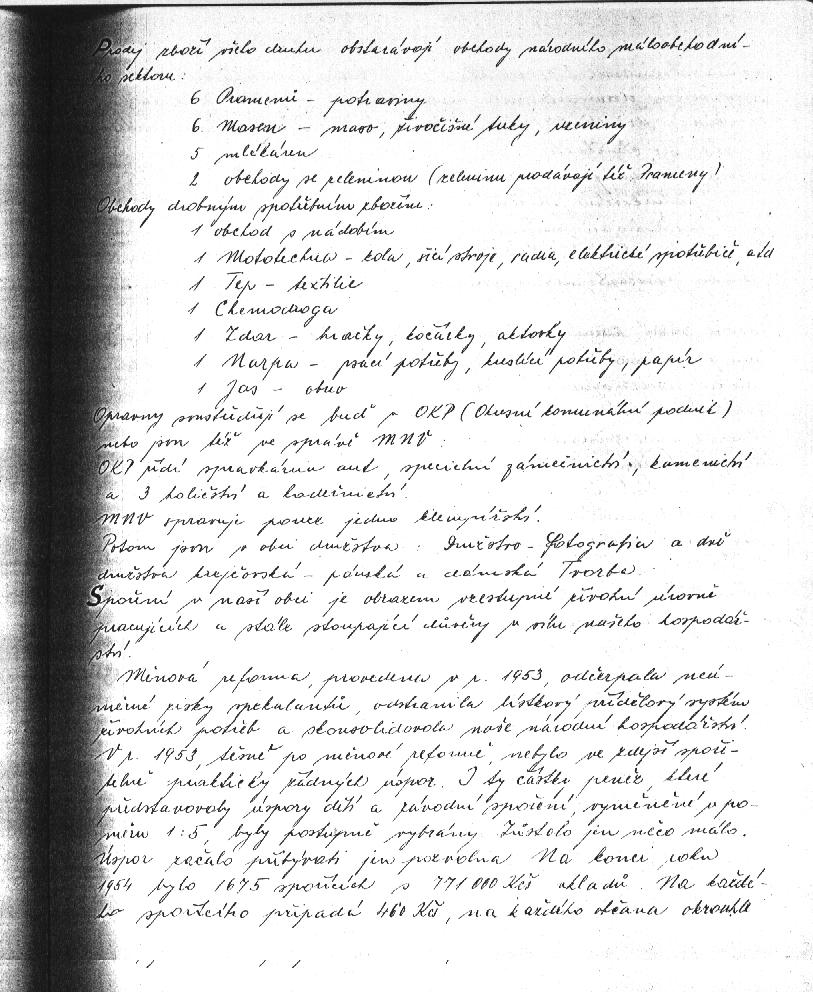 Prodej zboží všeho druhu obstarávají obchody národního maloobchodní-
ho sektoru:
6 Pramenů – potraviny
6 Masen – maso, živočišné tuky, uzeniny
5 mlékáren
2 obchody se zeleninou (zeleninu prodávají též Prameny)
Obchody drobným spotřebním zbožím:
1 obchod s nádobím
1 Mototechna – kola, šicí stroje, radia, elektrické spotřebiče, atd
1 Tep – textilie
1 Chemodroga
1 Zdar – hračky, kočárky, aktovky
1 Narpa – psací potřeby, kreslící potřeby, papír
1 Jas – obuv
Opravny soustřeďují se buď v OKP (Okresní komunální podnik)
nebo jsou též ve správě MNV:
OKP řídí spravkárnu aut, specielní zámečnictví, kamenictví
a 3 holičství a kadeřnictví.
MNV spravuje pouze jedno klempířství.
Potom jsou v obci družstva: Družstvo – fotografia a dvě
družstva krejčovská – pánská a dámská Tvorba.
Spoření v naší obci je obrazem vzestupné životní úrovně
pracujících a stále stoupající důvěry v sílu našeho hospodář-
ství.
Měnová reforma, provedena v r. 1953, odčerpala neú-
měrné zisky spekulantů, odstranila lístkový přídělový systém
životních potřeb a skonsolidovala naše národní hospodářství.
V r. 1953, těsně po měnové reformě, nebylo ve zdejší spoři-
telně prakticky žádných úspor. I ty částky peněz, které
představovaly úspory dětí a závodní spoření, vyměněné v po-
měru 1:5 byly postupně vybrány. Zůstalo jen něco málo.
Úspor začalo přibývati jen pozvolna. Na konci roku
1954 bylo 1675 spořících s 771 000 Kčs vkladů. Na každé-
ho spořícího připadá 460 Kčs, na každého občana okrouhle